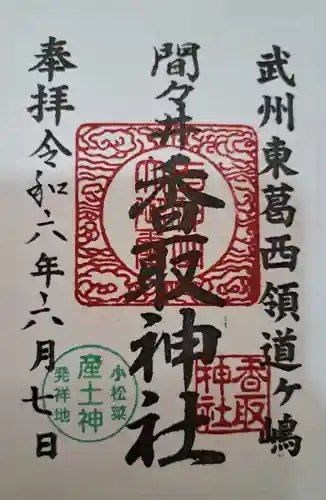 武州東葛西領道ヶ嶋
間々井
香取神社
奉拝令和六年六月七日
香取
神社
小松菜
産土神
発祥地